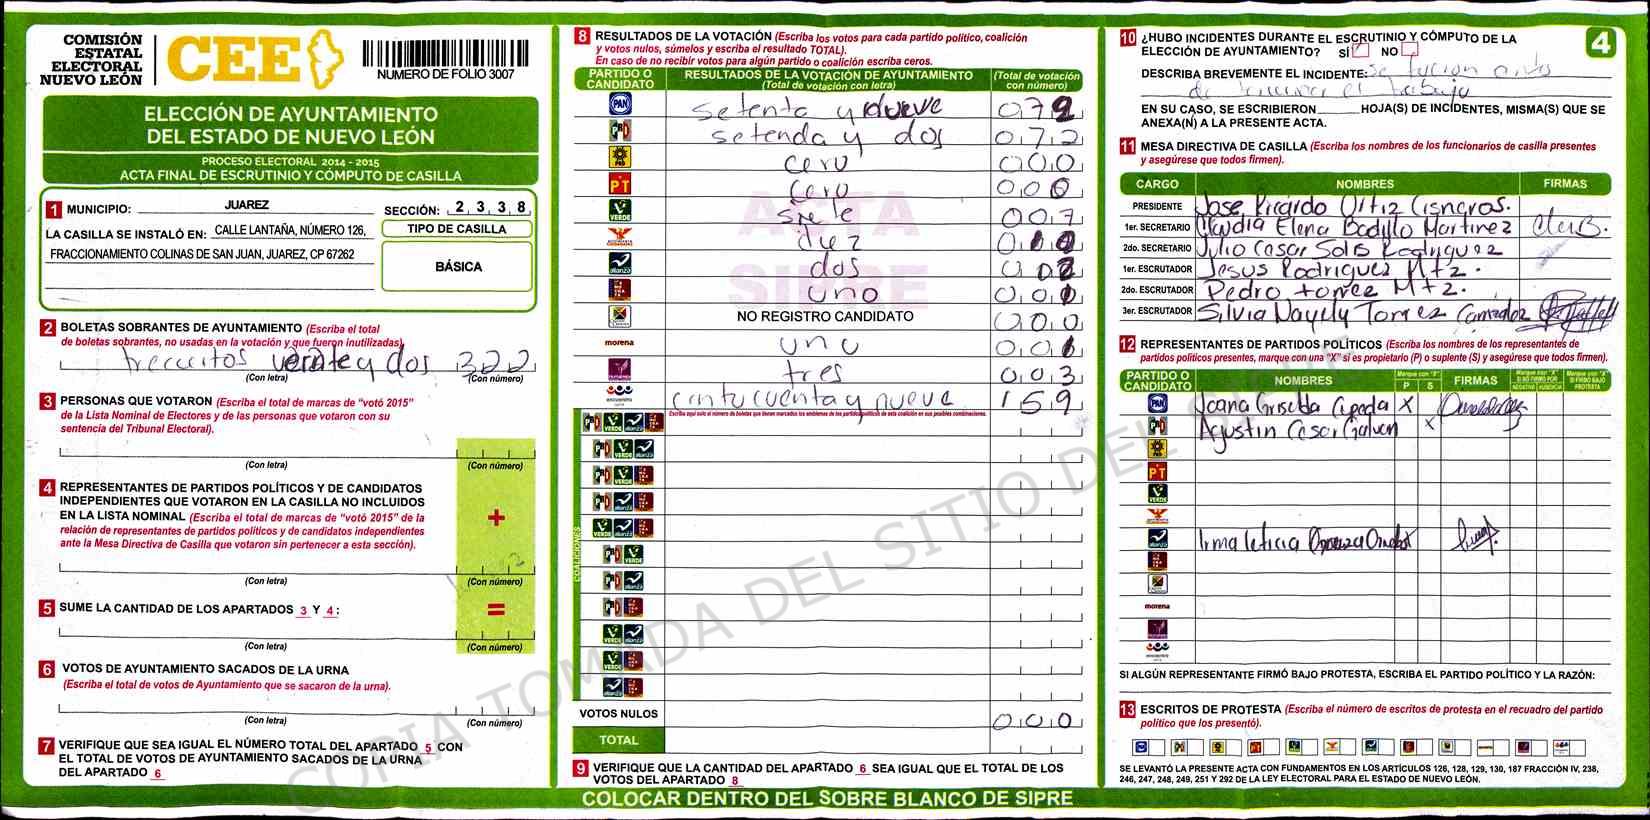 COMISIÓN
ESTATAL
ELECTORAL
NUEVO LEÓN
CEE
NUMERO DE FOLIO 3007
ELECCIÓN DE AYUNTAMIENTO
DEL ESTADO DE NUEVO LEÓN
PROCESO ELECTORAL 2014 - 2015
ACTA FINAL DE ESCRUTINIO Y CÓMPUTO DE CASILLA
1 MUNICIPIO: JUAREZ SECCIÓN: 2 3 3 8
LA CASILLA SE INSTALÓ EN: CALLE LANTAÑA, NÚMERO 126,
FRACCIONAMIENTO COLINAS DE SAN JUAN, JUAREZ, CP 67262
TIPO DE CASILLA
BÁSICA
2 BOLETAS SOBRANTES DE AYUNTAMIENTO (Escriba el total
de boletas sobrantes, no usadas en la votación y que fueron inutilizadas).
treccitos veinte y dos 322
(Con letra) (Con número)
3 PERSONAS QUE VOTARON (Escriba el total de marcas de “votó 2015”
de la Lista Nominal de Electores y de las personas que votaron con su
sentencia del Tribunal Electoral).
(Con letra) (Con número)
4 REPRESENTANTES DE PARTIDOS POLÍTICOS Y DE CANDIDATOS
INDEPENDIENTES QUE VOTARON EN LA CASILLA NO INCLUIDOS
EN LA LISTA NOMINAL (Escriba el total de marcas de “votó 2015” de la
relación de representantes de partidos políticos y de candidatos independientes
ante la Mesa Directiva de Casilla que votaron sin pertenecer a esta sección).
+
(Con letra) (Con número)
5 SUME LA CANTIDAD DE LOS APARTADOS 3 Y 4:
=
(Con letra) (Con número)
6 VOTOS DE AYUNTAMIENTO SACADOS DE LA URNA
(Escriba el total de votos de Ayuntamiento que se sacaron de la urna).
(Con letra) (Con número)
7 VERIFIQUE QUE SEA IGUAL EL NÚMERO TOTAL DEL APARTADO 5 CON
EL TOTAL DE VOTOS DE AYUNTAMIENTO SACADOS DE LA URNA
DEL APARTADO 6
8 RESULTADOS DE LA VOTACIÓN (Escriba los votos para cada partido político, coalición
y votos nulos, súmelos y escriba el resultado TOTAL).
En caso de no recibir votos para algún partido o coalición escriba ceros.
PARTIDO O CANDIDATO RESULTADOS DE LA VOTACIÓN DE AYUNTAMIENTO (Total de votación con letra) (Total de votación con número)
PAN setenta y nueve 079
PRI setenda y dos 072
PRD cero 000
PT cero 000
VERDE siete 007
diez 010
alianza dos 002
uno 001
NO REGISTRO CANDIDATO 000
morena uno 001
tres 003
encuentro cintucuenta y nueve 159
Escriba aquí solo el número de boletas que tienen marcados los emblemas de los partidos políticos de esta coalición en sus posibles combinaciones.
COALICIONES
VOTOS NULOS 000
TOTAL
9 VERIFIQUE QUE LA CANTIDAD DEL APARTADO 6 SEA IGUAL QUE EL TOTAL DE LOS
VOTOS DEL APARTADO 8
ACTA
SIPRE
10 ¿HUBO INCIDENTES DURANTE EL ESCRUTINIO Y CÓMPUTO DE LA
ELECCIÓN DE AYUNTAMIENTO? SÍ NO
4
DESCRIBA BREVEMENTE EL INCIDENTE: se fueron antes
de terminar el trabajo
EN SU CASO, SE ESCRIBIERON HOJA(S) DE INCIDENTES, MISMA(S) QUE SE
ANEXA(N) A LA PRESENTE ACTA.
11 MESA DIRECTIVA DE CASILLA (Escriba los nombres de los funcionarios de casilla presentes
y asegúrese que todos firmen).
CARGO NOMBRES FIRMAS
PRESIDENTE Jose Ricardo Ortiz Cisneros.
1er. SECRETARIO Claudia Elena Badillo Martinez
2do. SECRETARIO Julio Cesar Solis Rodriguez
1er. ESCRUTADOR Jesus Rodriguez Mtz.
2do. ESCRUTADOR Pedro torrez Mtz.
3er. ESCRUTADOR Silvia Nayely Torrez
12 REPRESENTANTES DE PARTIDOS POLÍTICOS (Escriba los nombres de los representantes de
partidos políticos presentes, marque con una “X” si es propietario (P) o suplente (S) y asegúrese que todos firmen).
PARTIDO O CANDIDATO NOMBRES Marque con “X” P S FIRMAS Marque con “X” SI NO FIRMÓ POR NEGATIVA AUSENCIA Marque con “X” SI FIRMÓ BAJO PROTESTA
PAN Joana Griselda Cepeda X
PRI Agustin Cesar Galvan X
PRD
PT
VERDE
alianza Irma leticia
morena
encuentro
SI ALGÚN REPRESENTANTE FIRMÓ BAJO PROTESTA, ESCRIBA EL PARTIDO POLÍTICO Y LA RAZÓN:
13 ESCRITOS DE PROTESTA (Escriba el número de escritos de protesta en el recuadro del partido
político que los presentó).
SE LEVANTÓ LA PRESENTE ACTA CON FUNDAMENTOS EN LOS ARTÍCULOS 126, 128, 129, 130, 187 FRACCIÓN IV, 238,
246, 247, 248, 249, 251 Y 292 DE LA LEY ELECTORAL PARA EL ESTADO DE NUEVO LEÓN.
COLOCAR DENTRO DEL SOBRE BLANCO DE SIPRE
COPIA TOMADA DEL SITIO DEL SIPRE